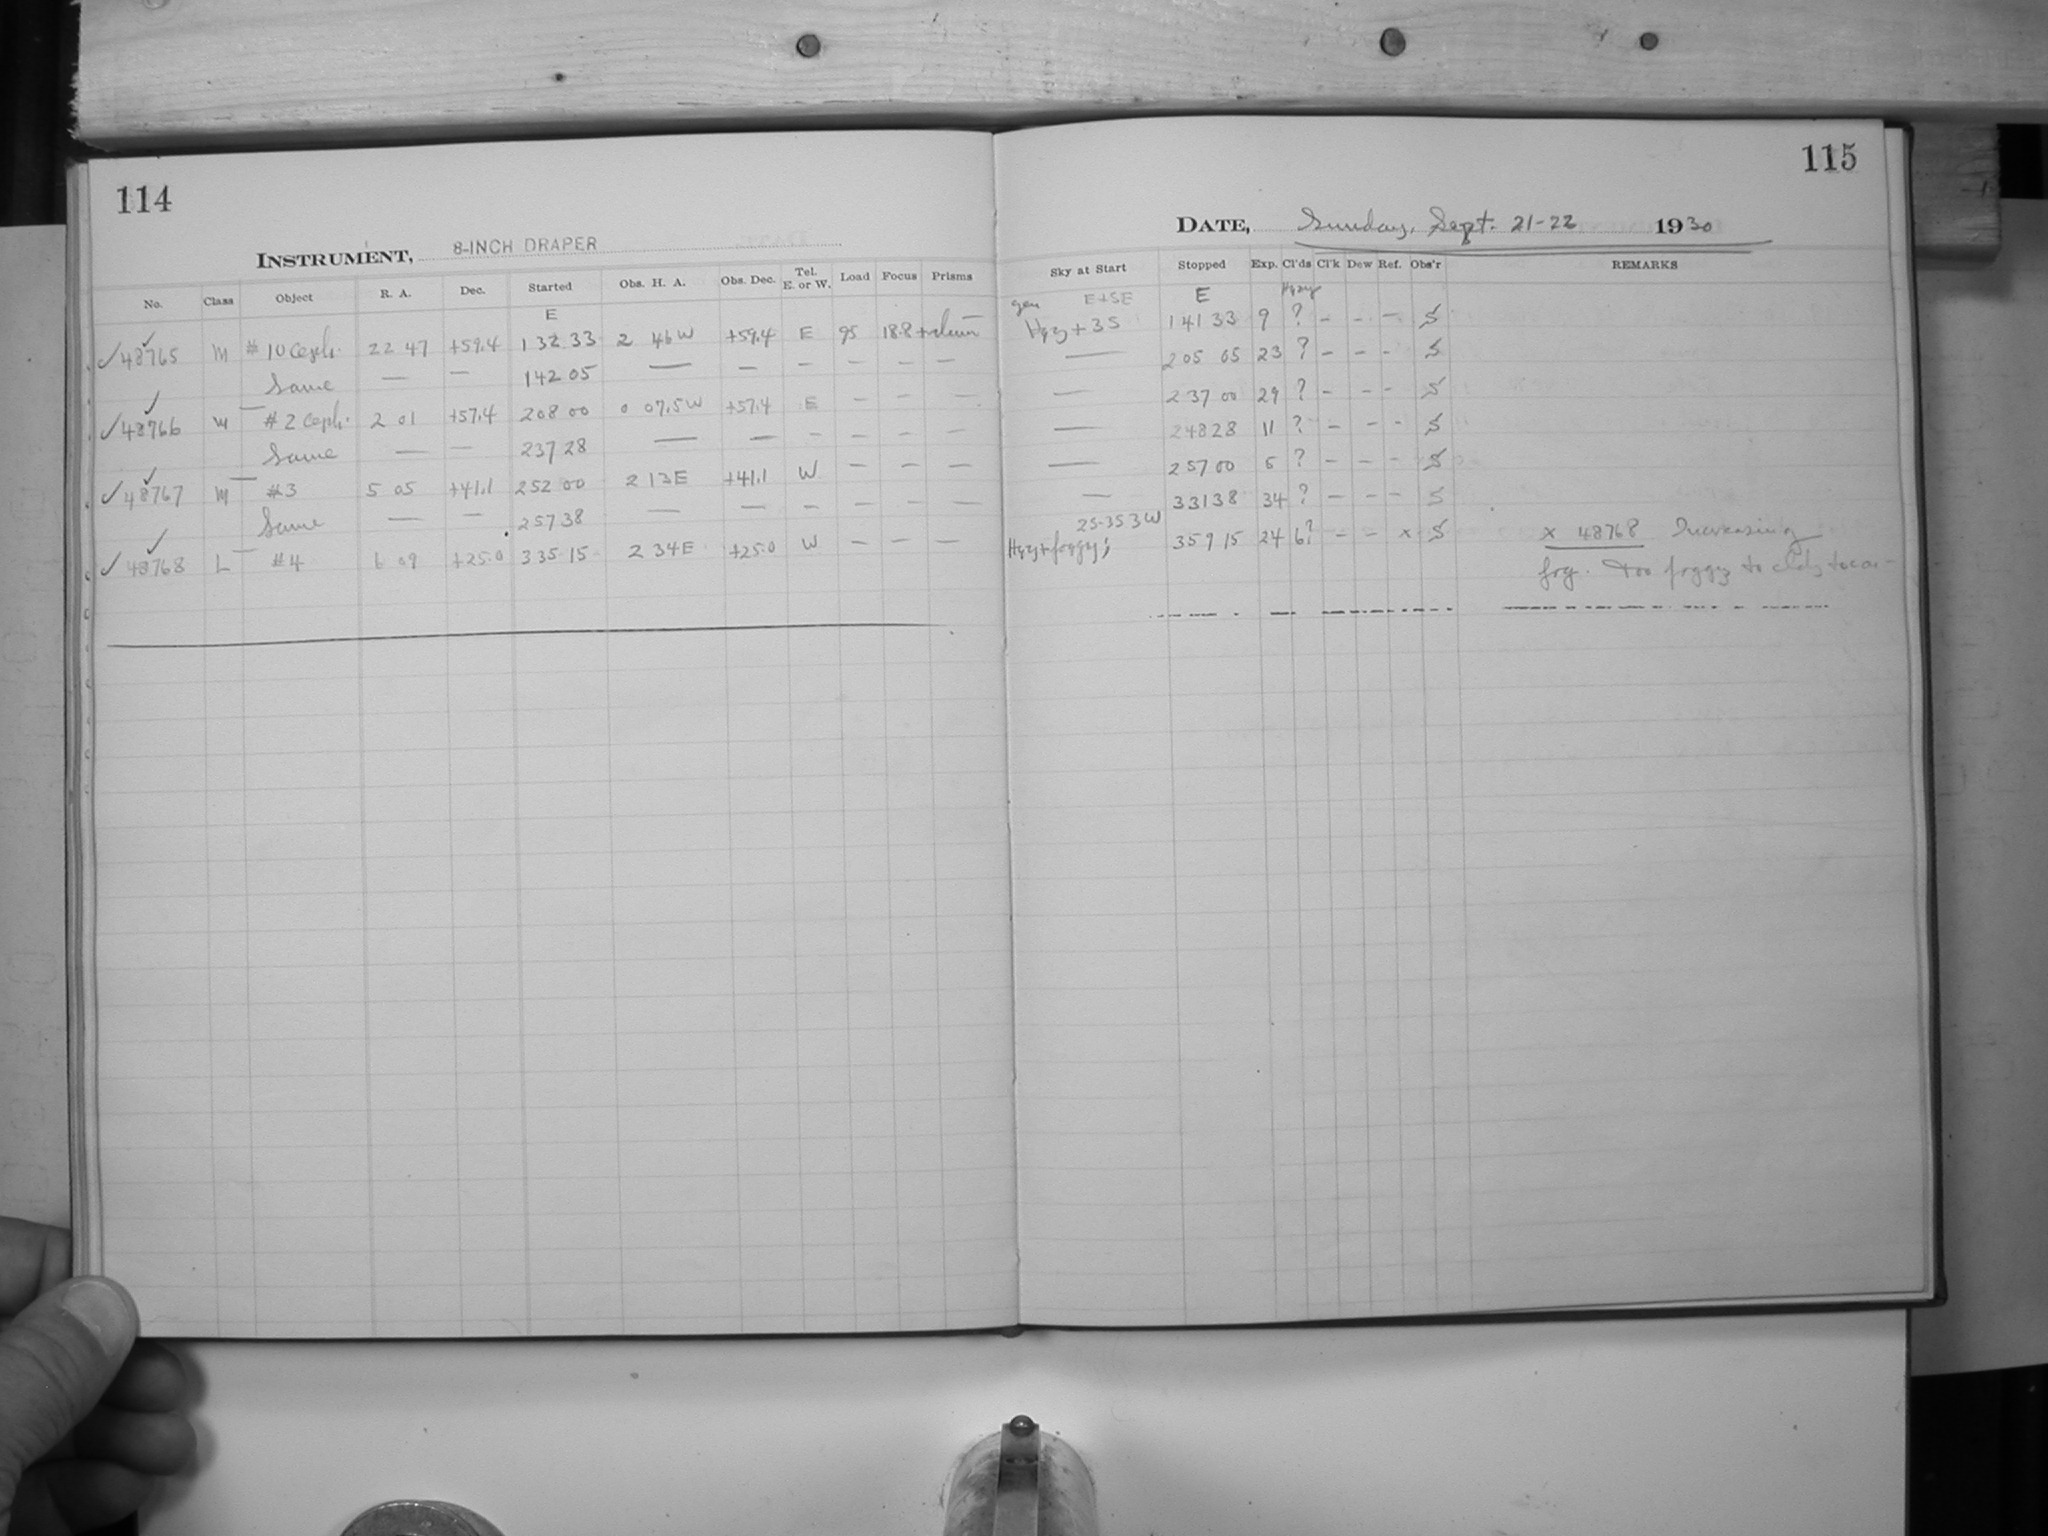 114
INSTRUMENT, 8-INCH DRAPER
No. Class Object R. A. Dec. Started Obs. H. A. Obs. Dec. Tel. E. or W. Load Focus Prisms
E
✓48765 M #10 Ceph. 22 47 +59.4 1 32 33 2 46 W +59.4 E 95 18.8
Same — — 1 42 05 — — — — — —
✓48766 M #2 Ceph. 2 01 +57.4 2 08 00 0 07.5 W +57.4 E — — —
Same — — 2 37 28 — — — — — —
✓48767 M #3 5 05 +41.1 2 52 00 2 13 E +41.1 W — — —
Same — — 2 57 38 — — — — — —
✓48768 L #4 6 09 +25.0 3 35 15 2 34 E +25.0 W — — —
115
DATE, Sunday, Sept. 21-22 1930
Sky at Start Stopped Exp. Cl'ds Cl'k Dew Ref. Obs'r REMARKS
gen E+SE E Hazy
Hazy + 3S 1 41 33 9 ? — — — S
— 2 05 05 23 ? — — — S
— 2 37 00 29 ? — — — S
— 2 48 28 11 ? — — — S
— 2 57 00 5 ? — — — S
— 3 31 38 34 ? — — — S
25-353W
Hazy + foggy; 3 59 15 24 6? — — x S x 48768 Increasing
fog. Too foggy to